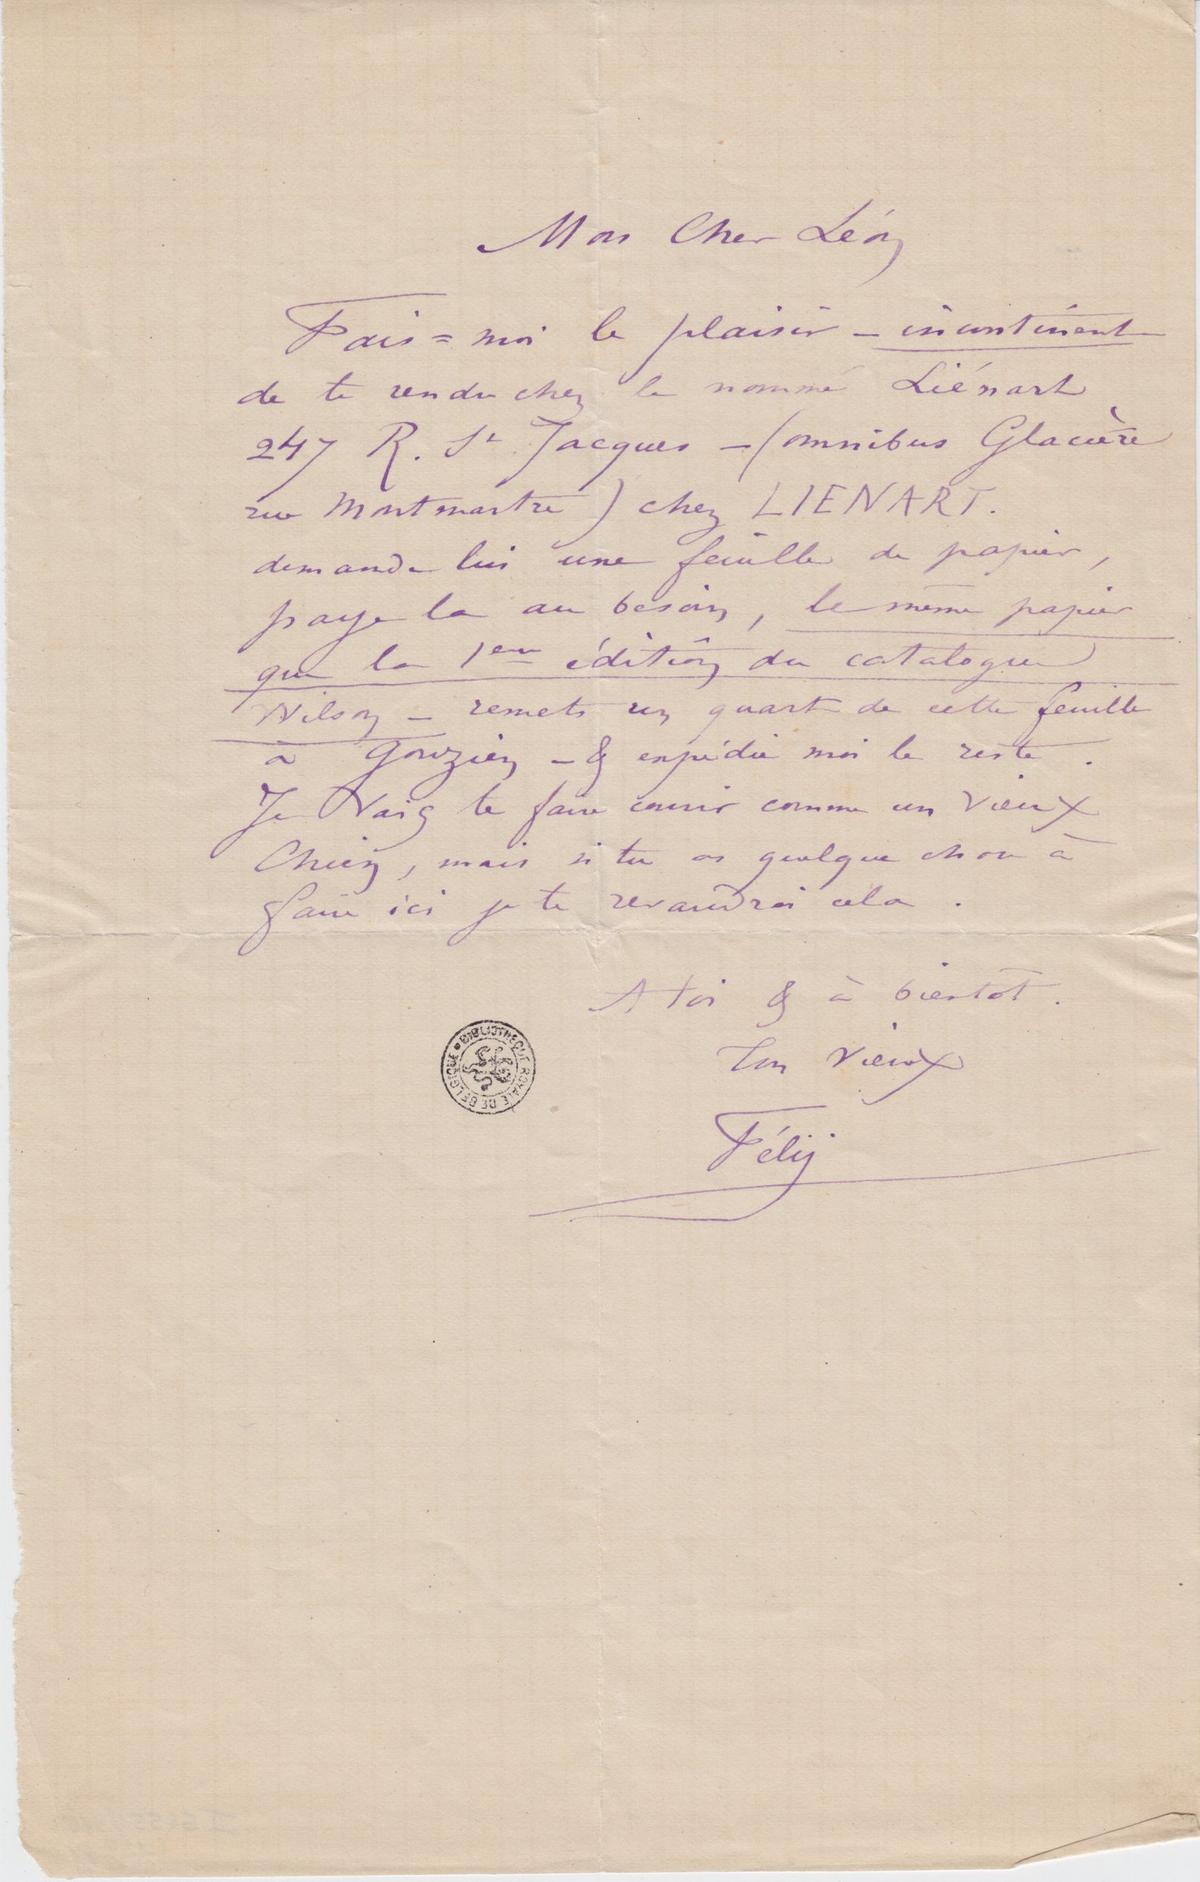 Mon Cher Léon
Fais=moi le plaisir – incontinent
de te rendre chez le nommé Liénart
247 R. St Jacques – (omnibus Glacière
rue Montmartre) chez LIENART.
demande lui une feuille de papier,
paye la au besoin, le même papier
que la 1ere édition du catalogue
Wilson – remets un quart de cette feuille
à Gouzien – & expédie moi le reste.
Je Vais te faire courir comme un vieux
Chien, mais si tu as quelque chose à
faire ici je te revaudrai cela.
A toi & à bientot.
Ton vieux
Fély
BIBLIOTHEQUE ROYALE DE BELGIQUE